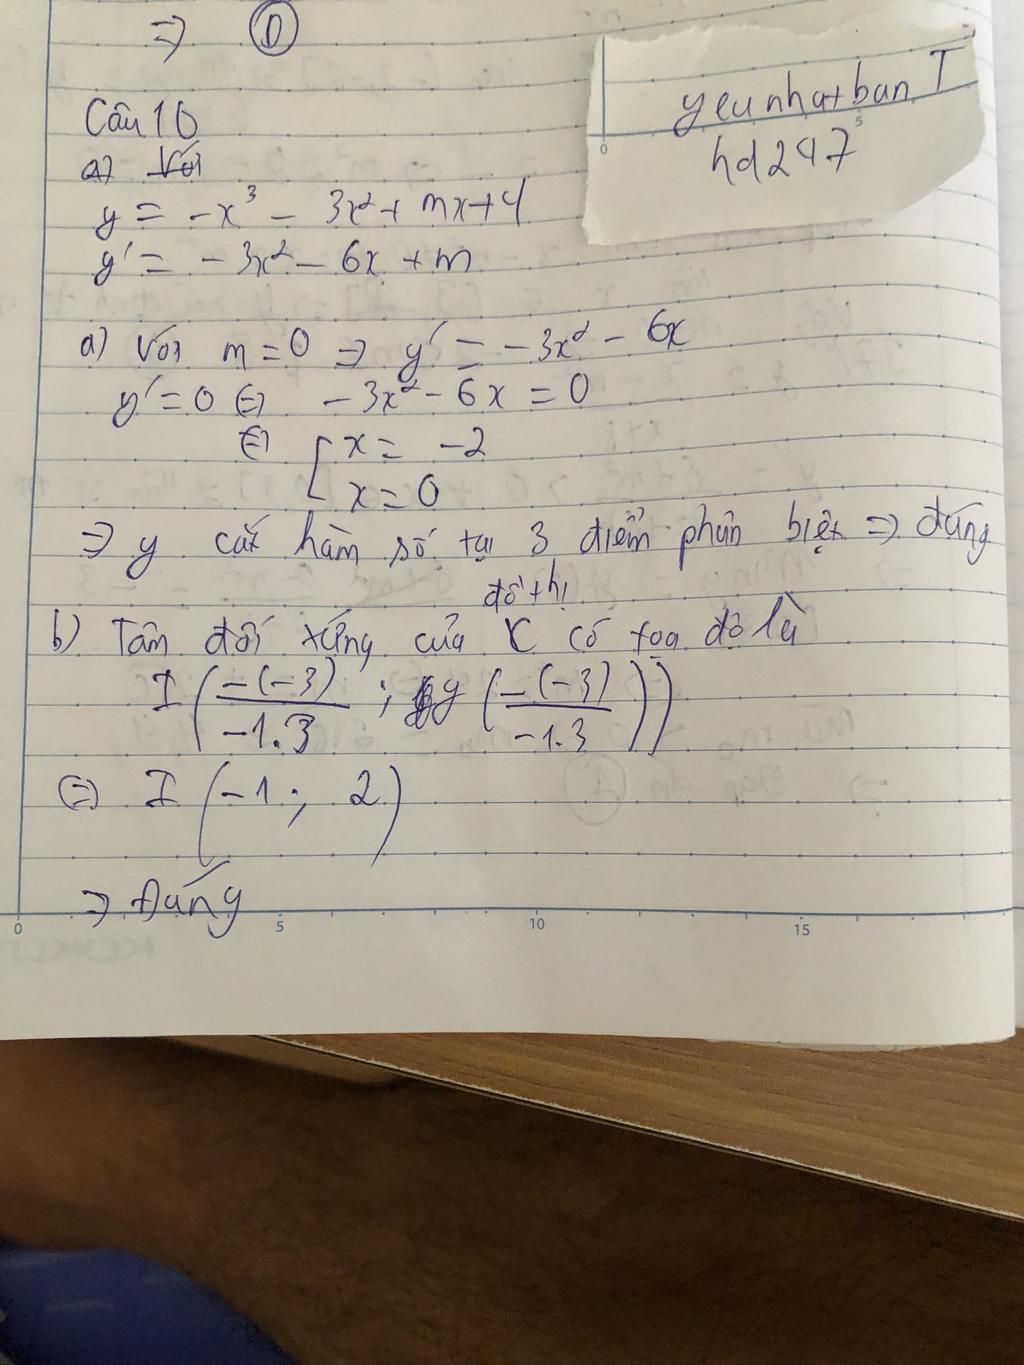 ⇒ D
yeunhatban T
hd247
Câu 10
a) Với
y = -x³ - 3x² + mx + 4
y' = -3x² - 6x + m
a) Với m = 0 ⇒ y' = -3x² - 6x
y' = 0 ⇔ -3x² - 6x = 0
⇔ [ x = -2
x = 0
⇒ y cắt hàm số tại 3 điểm phân biệt ⇒ đúng
đồ thị
b) Tâm đối xứng của C có tọa độ là
I ( -(-3) / -1.3 ; y ( -(-3) / -1.3 ) )
⇔ I ( -1 ; 2 )
⇒ Đúng
0 5 10 15
0 5